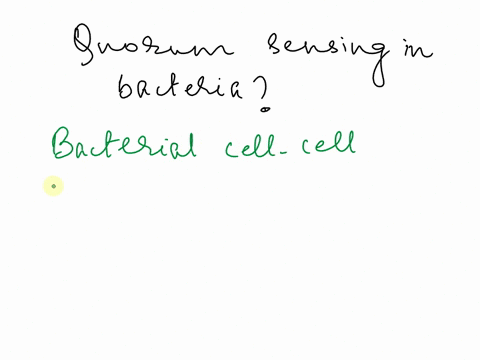 Quorum sensing in
bacteria?
Bacterial cell-cell